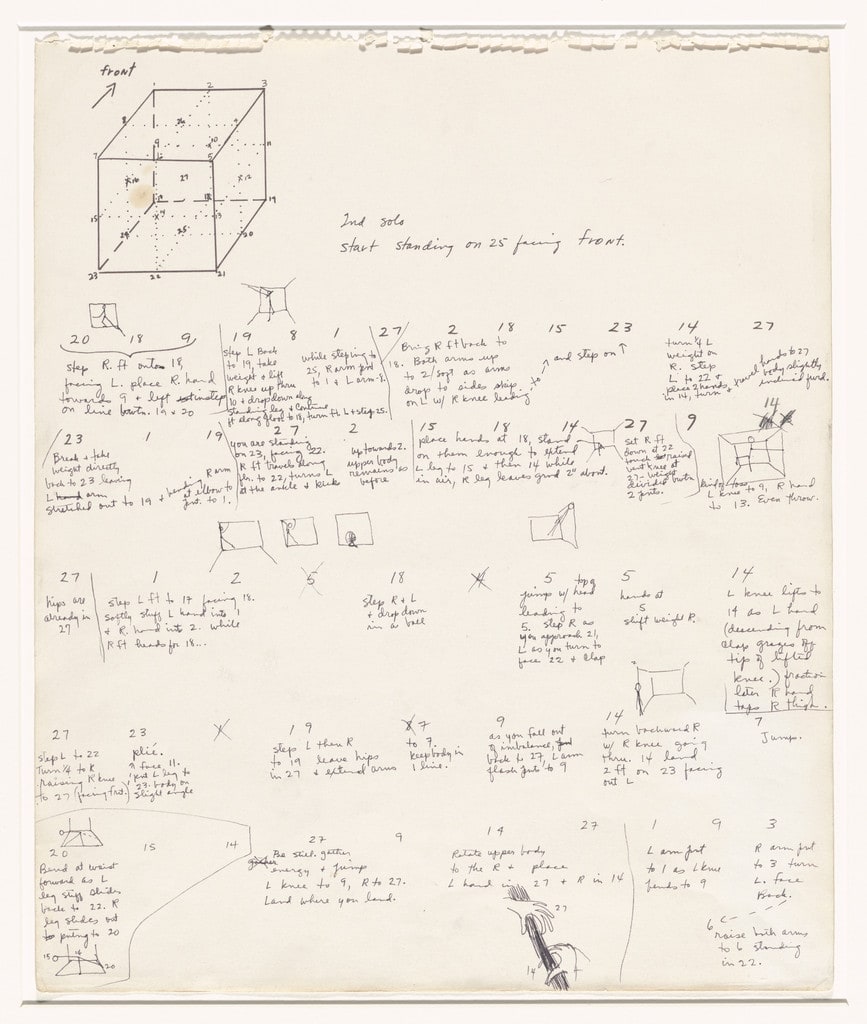 front
1 2 3
8 26 9
9 10 11
7 6 5
X16 27 X12
17 18 19
15 14 13
24 25 20
23 22 21
2nd solo
start standing on 25 facing front.
20 18 9
step R. ft onto 18,
facing L. place R. hand
towards 9 + left
on line btwn. 19 + 20
19 8 1
step L back
to 19, take
weight + lift
R knee up thru
10 + drop down along
standing leg + continue
ft along floor to 18, turn ft L + step 25.
while stepping to
25, R arm
to 1 + L arm-8.
27 2 18 15 23
Bring R ft back to
18. Both arms up
to 2/sort as arms
drop to sides skip
on L w/ R knee leading
to
and step on
14 27
turn 1/4 L
weight on
R. step
L to 22 +
place 2 hands
in 14, turn + travel hands to 27
body slightly
inclined fwrd.
23 1 19
Break + take
weight directly
back to 23 leaving
L arm
stretched out to 19 + bending R arm
at elbow to
pnt. to 1.
27 2
you are standing
on 23, facing 22.
R ft travels along
flr. to 22, turns L
at the ankle + kicks
up towards 2.
upper body
remains as
before
15 18 14
place hands at 18, stand
on them enough to extend
L leg to 15 + then 14 while
in air, R leg leaves grnd 2" abont.
27
set R. ft
down at 22
touch raised
bent knee at
27 - weight
divided btwn
2 pnts.
9 14
L knee to 9, R hand
to 13. Even throw.
27
hips are
already in
27
1 2 5 18 4
step L ft to 17 facing 18.
softly stuff L hand into 1
+ R. hand into 2. while
R ft heads for 18...
step R + L
+ drop down
in a ball
5 5
jump w/ top of head
leading to
5. step R as
you approach 21,
L as you turn to
face 22 + clap
hands at
5
shift weight R.
14
L knee lifts to
14 as L hand
(descending from
clap grazes off
tip of lifted
knee.) fraction
later R hand
taps R thigh.
27 23 1
step L to 22
Turn 1/4 to R
raising R knee
to 27 (facing frnt.)
plié.
face, 11.
put L leg to
23. body on
slight angle
19
step L then R
to 19 leave hips
in 27 + extend arms
7
to 7.
keep body in
1 line.
9
as you fall out
of imbalance,
back to 27, L arm
flash pnts to 9
14
turn backward R
w/ R knee going
thru. 14 land
2 ft on 23 facing
out L
7
Jump.
20 15 14
Bend at waist
forward as L
leg stiff slides
back to 22. R
leg slides out
pnting to 20
15 14 20
27 9
Be still. gather
energy + jump
L knee to 9, R to 27.
Land where you land.
14 27
Rotate upper body
to the R + place
L hand in 27 + R in 14
27
14
1 9 3
L arm pnt
to 1 as L knee
bends to 9
R arm pnt
to 3 turn
L. face
Back.
6
raise both arms
to 6 standing
in 22.